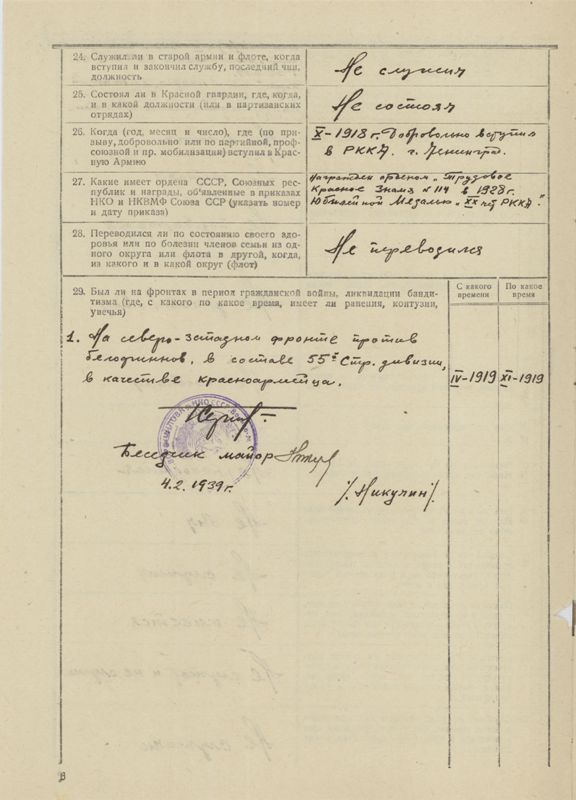 24. Служил ли в старой армии и флоте, когда
вступил и закончил службу, последний чин,
должность
Не служил
25. Состоял ли в Красной гвардии, где, когда,
и в какой должности (или в партизанских
отрядах)
Не состоял
26. Когда (год, месяц и число), где (по при-
зыву, добровольно или по партийной, проф-
союзной и пр. мобилизации) вступил в Крас-
ную Армию
X-1918 г. Добровольно вступил
в РККА г. Ленинград.
27. Какие имеет ордена СССР, Союзных рес-
публик и награды, об'явленные в приказах
НКО и НКВМФ Союза ССР (указать номер
и дату приказа)
Награжден орденом „Трудовое
Красное Знамя № 114 в 1928 г.
Юбилейной Медалью „XX лет РККА".
28. Переводился ли по состоянию своего здо-
ровья или по болезни членов семьи из од-
ного округа или флота в другой, когда,
из какого и в какой округ (флот)
Не переводился
29. Был ли на фронтах в период гражданской войны, ликвидации банди-
тизма (где, с какого по какое время, имеет ли ранения, контузии,
увечья)
С какого
времени
По какое
время
1. На северо-западном фронте против
белофиннов, в составе 55й Стр. дивизии,
в качестве красноармейца.
IV-1919 XI-1919
майор
4.2.1939 г.
/Никулин/.